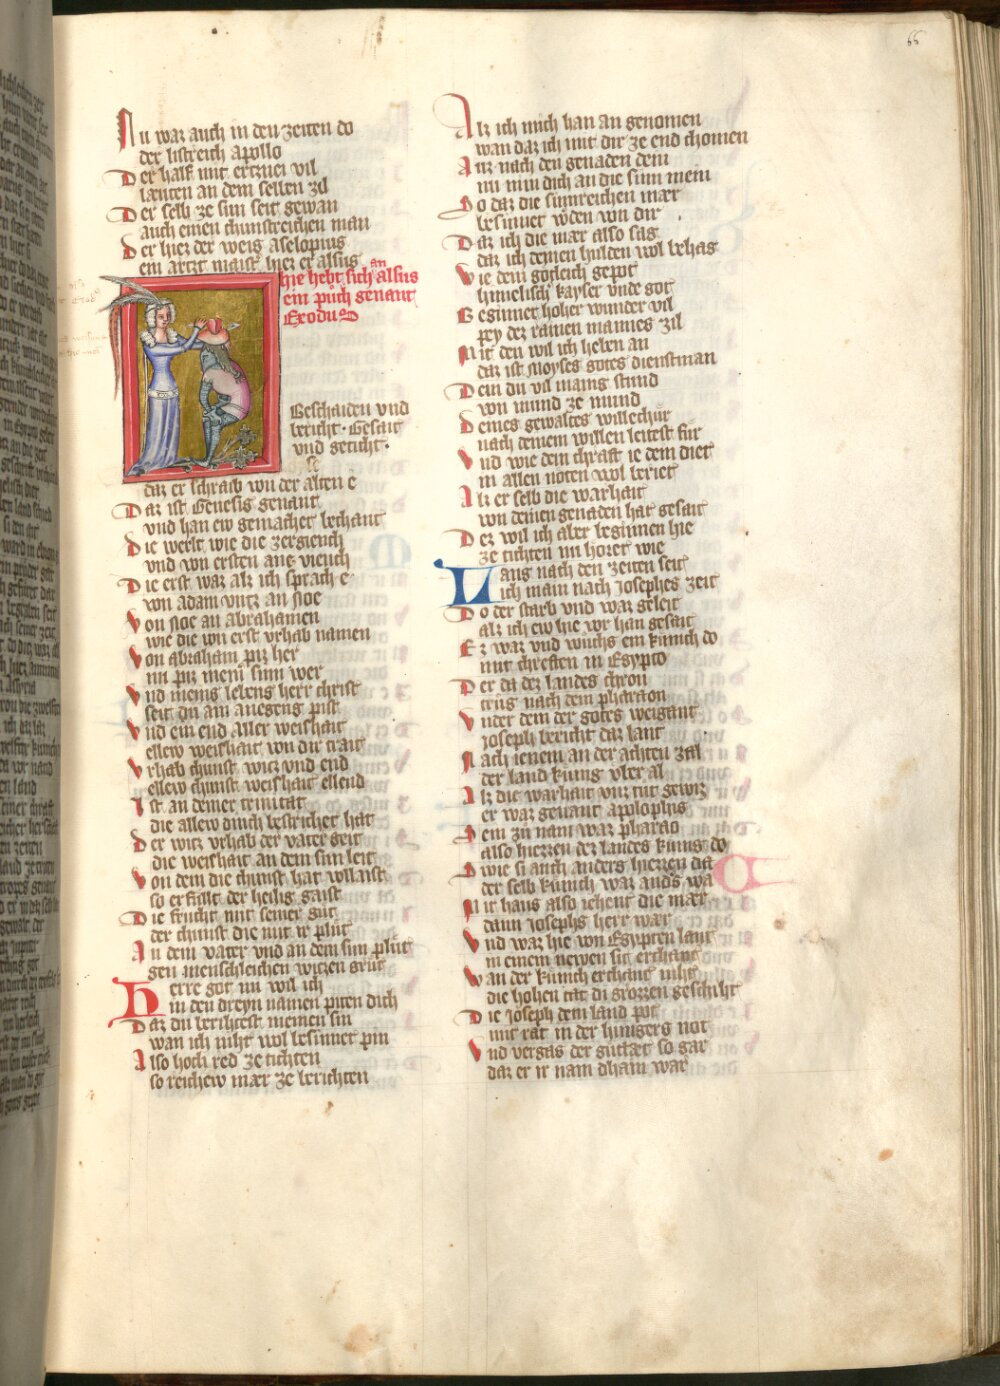 66
Nu waz auch in den zeiten do
der listreich apollo
Der half mit ertznei vil
læuten an dem selben zil
Der selb ze sun seit gewan
auch einen chunstreichen man
Der hiez der weis asclopius
ein artzt maist hiez er alsus
an
hie hebt sich alsus
ein půch genant
Exodus
Beschaiden vnd
bericht · Gesait
vnd geticht ·
se
daz er schraib von der alten e
Daz ist Genesis genant
vnd han ew gemachet bechant
Die werlt wie die zergiench
vnd von ersten ane viench
Die erst waz alz ich sprach e
von adam vntz an Noe
Von Noe an Abrahamen
wie die von erst vrhab namen
Von abraham piz her
nu piz meni sunn wer
Vnd meins lebens herr christ
seit du am anegeng pist
Vnd ein end aller weishait
ellew weishait von dir trait
Vrhab chunst witz vnd end
ellew chunst weishait ellend
Ist an deiner trinitat
die allew dinch bestrichet hat
Der witz vrhab der vater geit
die weishait an dem sun leit
Von dem die chunst hat vollaist
so erfullt der heilig gaist
Die frucht mit seiner güt
der chunst die mit ir plüt
An dem vater vnd an dem sun plüt
gen menschleichen witzen grüt
Herre got nu wil ich
in den dreyn namen piten dich
Daz du berihtest meinen sin
wan ich niht wol besinnet pin
Also hoch red ze tichten
so reichew mær ze berichten
Alz ich mich han an genomen
wan daz ich mit dir ze end chomen
Antz nach den genaden dein
nu min dich an die sinn mein
So daz die sinnreichen mær
besinnet werden von dir
Daz ich die mær also sag
daz ich deinen hulden wol behag
Wie dein gotleich gepot
himelisch kayser vnde got
Besinnet hoher wunder vil
pey dez rainen mannes zil
Mit den wil ich heben an
daz ist Moyses gotes dienstman
Dein du vil manig stund
von mund ze mund
Deines gewaltes willechür
nach deinem willen leitest für
Vnd wie dein chraft ie dem diet
in allen nöten wol beriet
Alz er selb die warhait
von deinen genaden hat gesait
Dez wil ich aber beginnen hie
ze tichten nu horet wie
Lang nach den zeiten seit
ich main nach Josephes zeit
Do der starb vnd waz geleit
alz ich ew hie vor han gesait
Ez waz vnd wůchs ein kunich do
mit chreften in Egypto
Der da dez landes chron
trůg nach dem pharaon
Vnder dem der gotes weigant
Joseph bericht daz lant
Nach ienem an der achten zal
der land kunig vber al
Alz die warhait vnz tüt gewiz
er waz genant apolophis
Sein zů nam waz pharao
also hiezzen dez landes kunig do
Swie si auch anders hiezzen da
der selb kunich waz anders wa
Nit haus also iehent die mær
dann Josephs herr wær
Vnd waz hie von Egypten lant
in einem newen sit erchant
Wan der kunich erchant niht
die hohen tat di grozzen geschiht
Die Joseph dem land pot
mit rat in der hungers not
Vnd vergas der gůttæt so gar
daz er ir nam dhain war